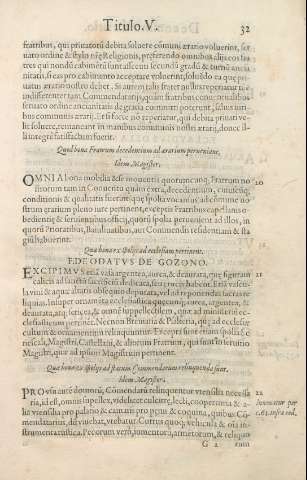 Titulo. V. 32
fratribus, qui priuatorū debita soluere cōmuni ærario voluerint, ser
uato ordine & stylo nr̄e Religionis, præferendo omnibus alijs eos fra
tres qui nondū
nitatis, si eas pro cabimento acceptare voluerint, soluēdo ea quæ pri
uatus ærario nostro debet. Si autem tales frater nostri reperiantur
indifferenter tam Commendatarijs, quàm fratribus conuentualibus
seruato ordine ancianitatis de gratia communi poterunt, saluis iuri
bus communis ærarij. Et si forte nō reperiatur, qui debita priuati ve
lit soluere, remaneant in manibus communis nostri ærarij, donec il-
li integrè satisfactum fuerit.
Quæ bona Fratrum decedentium ad ærarium perueniant.
Idem Magister.
OMNIA bona mobilia & se mouentia quorumcunq; Fratrum no 20
strorum tam in Conuentu quàm extra, decedentium, cuiuscūq;
conditionis & qualitatis fuerint, quæ spolia vocamus ad cōmune no
strum ærarium pleno iure pertinent, exceptis Fratribus capellanis o-
bedientię & seruientibus officij, quorū spolia perueniant ad illos, in
quorū Prioratibus, Baiuliatibus, aut Commendis residentiam & sta
giā habuerint.
Quæ bona ex spolijs ad ecclesiam pertinent.
F. DEODATVS DE GOZONO.
EXCIPIMVS etiā vasa argentea, aurea, & deaurata, quę figuram 21
calicis ad sanctū sacrificiū dedicati, seu crucis habent. Et si vascu-
la vini & aquæ altaris obsequio deputata, vel ad reponendas sacras re
liquias. Insuper ornamēta ecclesiastica quæcunq; aurea, argentea, &
deaurata, atq; sericea, & omnē suppellectilem, quæ ad ministeriū ec-
clesiasticum pertinet. Necnon Breuiaria & Psalteria, quę ad ecclesiæ
cultum & ornamentum relinquuntur. Excepta sunt etiam spolia, Se
nescali, Magistri, Castellani, & aliorum Fratrum, qui sunt in seruitio
Magistri, quæ ad ipsum Magistrum pertinent.
Quæ bona ex spolijs ad statum Commendarum relinquenda sunt.
Idem Magister.
PRO vsu autē domorū, Cōmendarū relinquentur vtensilia necessa 22
ria, id est, omnis supellex, videlicet culcitræ, lecti, coopertoria & a-
lia vtensilia pro palano & camaris pro penu & coquina, quibus Cō-
mendatarius, dū viuebat, vtebatur. Currus quoq; vehicula & oīa in-
strumenta rustica. Pecorum verò, iumentorū, armentorum, & reliquo
G 2 rum